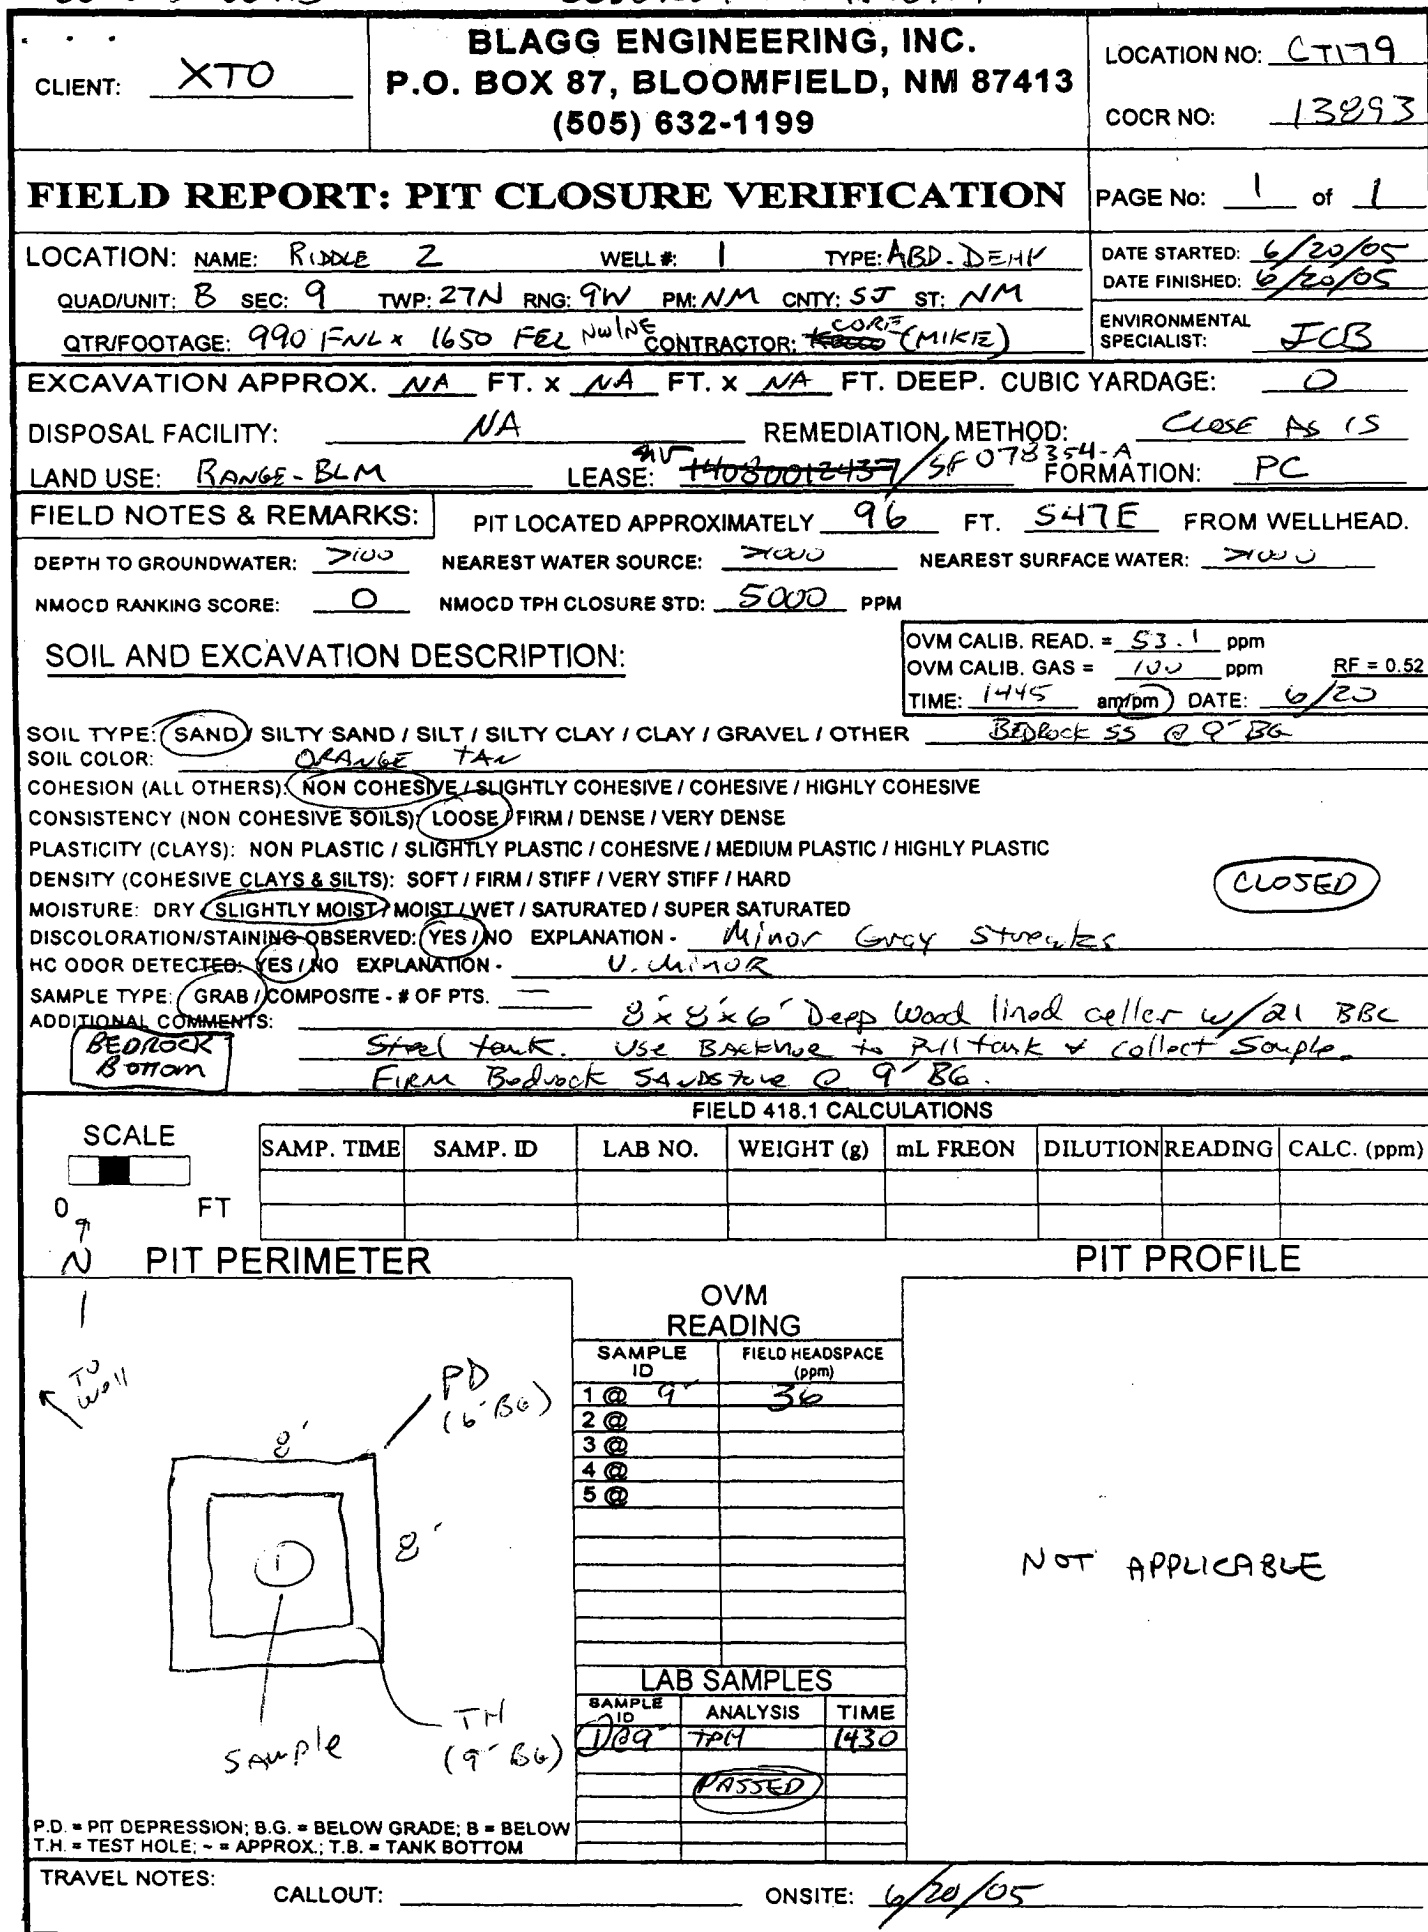 BLAGG ENGINEERING, INC.
P.O. BOX 87, BLOOMFIELD, NM 87413
(505) 632-1199
CLIENT: XTO
LOCATION NO: CT179
COCR NO: 13893
FIELD REPORT: PIT CLOSURE VERIFICATION
PAGE No: 1 of 1
LOCATION: NAME: RIDDLE Z WELL #: 1 TYPE: ABD. DEHY
QUAD/UNIT: B SEC: 9 TWP: 27N RNG: 9W PM: NM CNTY: SJ ST: NM
QTR/FOOTAGE: 990 FNL x 1650 FEL NW/NE CONTRACTOR: CORE (MIKE)
DATE STARTED: 6/20/05
DATE FINISHED: 6/20/05
ENVIRONMENTAL SPECIALIST: JCB
EXCAVATION APPROX. NA FT. x NA FT. x NA FT. DEEP. CUBIC YARDAGE: 0
DISPOSAL FACILITY: NA REMEDIATION METHOD: CLOSE AS IS
LAND USE: RANGE - BLM LEASE: 14080012437 / SF 078354-A FORMATION: PC
FIELD NOTES & REMARKS: PIT LOCATED APPROXIMATELY 96 FT. S47E FROM WELLHEAD.
DEPTH TO GROUNDWATER: >100 NEAREST WATER SOURCE: >1000 NEAREST SURFACE WATER: >1000
NMOCD RANKING SCORE: 0 NMOCD TPH CLOSURE STD: 5000 PPM
SOIL AND EXCAVATION DESCRIPTION:
OVM CALIB. READ. = 53.1 ppm
OVM CALIB. GAS = 100 ppm RF = 0.52
TIME: 1445 am/pm DATE: 6/20
SOIL TYPE: SAND / SILTY SAND / SILT / SILTY CLAY / CLAY / GRAVEL / OTHER BEDROCK SS @ 9' BG
SOIL COLOR: ORANGE TAN
COHESION (ALL OTHERS): NON COHESIVE / SLIGHTLY COHESIVE / COHESIVE / HIGHLY COHESIVE
CONSISTENCY (NON COHESIVE SOILS): LOOSE / FIRM / DENSE / VERY DENSE
PLASTICITY (CLAYS): NON PLASTIC / SLIGHTLY PLASTIC / COHESIVE / MEDIUM PLASTIC / HIGHLY PLASTIC
DENSITY (COHESIVE CLAYS & SILTS): SOFT / FIRM / STIFF / VERY STIFF / HARD
CLOSED
MOISTURE: DRY / SLIGHTLY MOIST / MOIST / WET / SATURATED / SUPER SATURATED
DISCOLORATION/STAINING OBSERVED: YES / NO EXPLANATION - Minor Gray Streaks
HC ODOR DETECTED: YES / NO EXPLANATION - V. MINOR
SAMPLE TYPE: GRAB / COMPOSITE - # OF PTS. —
ADDITIONAL COMMENTS: 8' x 8' x 6' Deep Wood lined celler w/ 21 BBL
Steel tank. Use Backhoe to Pull tank & collect Sample.
FIRM Bedrock SANDSTONE @ 9' BG.
BEDROCK
BOTTOM
FIELD 418.1 CALCULATIONS
SCALE
0 FT
SAMP. TIME SAMP. ID LAB NO. WEIGHT (g) mL FREON DILUTION READING CALC. (ppm)
N
PIT PERIMETER
PIT PROFILE
OVM
READING
SAMPLE ID FIELD HEADSPACE (ppm)
1 @ 9' 36
2 @
3 @
4 @
5 @
TO
well
PD
(6' BG)
8'
8'
1
SAmple
TH
(9' BG)
NOT APPLICABLE
LAB SAMPLES
SAMPLE ID ANALYSIS TIME
1@9' TPH 1430
PASSED
P.D. = PIT DEPRESSION; B.G. = BELOW GRADE; B = BELOW
T.H. = TEST HOLE; ~ = APPROX.; T.B. = TANK BOTTOM
TRAVEL NOTES:
CALLOUT: ONSITE: 6/20/05